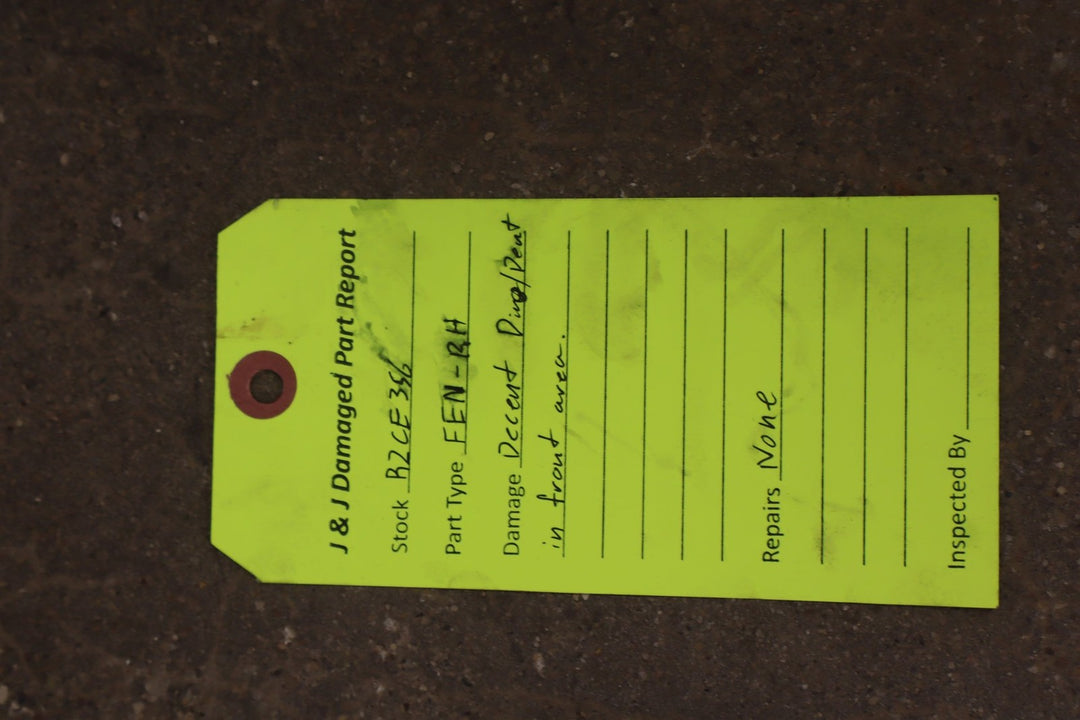 J & J Damaged Part Report
Stock R2CE 356
Part Type FEN-RH
Damage Decent Ding/Dent
in front area.
Repairs None
Inspected By